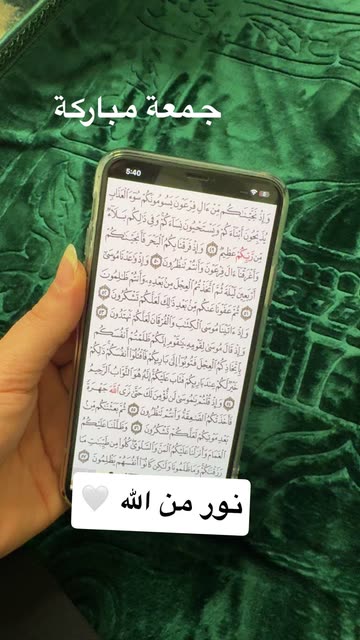 جمعة مباركة
5:40
وَإِذْ نَجَّيْنَٰكُم مِّنْ ءَالِ فِرْعَوْنَ يَسُومُونَكُمْ سُوٓءَ ٱلْعَذَابِ
يُذَبِّحُونَ أَبْنَآءَكُمْ وَيَسْتَحْيُونَ نِسَآءَكُمْ وَفِى ذَٰلِكُم بَلَآءٌ
مِّن رَّبِّكُمْ عَظِيمٌ ٤٩ وَإِذْ فَرَقْنَا بِكُمُ ٱلْبَحْرَ فَأَنجَيْنَٰكُمْ
وَأَغْرَقْنَآ ءَالَ فِرْعَوْنَ وَأَنتُمْ تَنظُرُونَ ٥٠ وَإِذْ وَٰعَدْنَا مُوسَىٰٓ
أَرْبَعِينَ لَيْلَةً ثُمَّ ٱتَّخَذْتُمُ ٱلْعِجْلَ مِنۢ بَعْدِهِۦ وَأَنتُمْ ظَٰلِمُونَ
٥١ ثُمَّ عَفَوْنَا عَنكُم مِّنۢ بَعْدِ ذَٰلِكَ لَعَلَّكُمْ تَشْكُرُونَ ٥٢
وَإِذْ ءَاتَيْنَا مُوسَى ٱلْكِتَٰبَ وَٱلْفُرْقَانَ لَعَلَّكُمْ تَهْتَدُونَ ٥٣
وَإِذْ قَالَ مُوسَىٰ لِقَوْمِهِۦ يَٰقَوْمِ إِنَّكُمْ ظَلَمْتُمْ أَنفُسَكُم
بِٱتِّخَاذِكُمُ ٱلْعِجْلَ فَتُوبُوٓا۟ إِلَىٰ بَارِئِكُمْ فَٱقْتُلُوٓا۟ أَنفُسَكُمْ ذَٰلِكُمْ
خَيْرٌ لَّكُمْ عِندَ بَارِئِكُمْ فَتَابَ عَلَيْكُمْ إِنَّهُۥ هُوَ ٱلتَّوَّابُ ٱلرَّحِيمُ
٥٤ وَإِذْ قُلْتُمْ يَٰمُوسَىٰ لَن نُّؤْمِنَ لَكَ حَتَّىٰ نَرَى ٱللَّهَ جَهْرَةً
فَأَخَذَتْكُمُ ٱلصَّٰعِقَةُ وَأَنتُمْ تَنظُرُونَ ٥٥ ثُمَّ بَعَثْنَٰكُم مِّنۢ
بَعْدِ مَوْتِكُمْ لَعَلَّكُمْ تَشْكُرُونَ ٥٦ وَظَلَّلْنَا عَلَيْكُمُ
ٱلْغَمَامَ وَأَنزَلْنَا عَلَيْكُمُ ٱلْمَنَّ وَٱلسَّلْوَىٰ كُلُوا۟ مِن طَيِّبَٰتِ مَا
رَزَقْنَٰكُمْ وَمَا ظَلَمُونَا وَلَٰكِن كَانُوٓا۟ أَنفُسَهُمْ يَظْلِمُونَ ٥٧
نور من الله 🤍